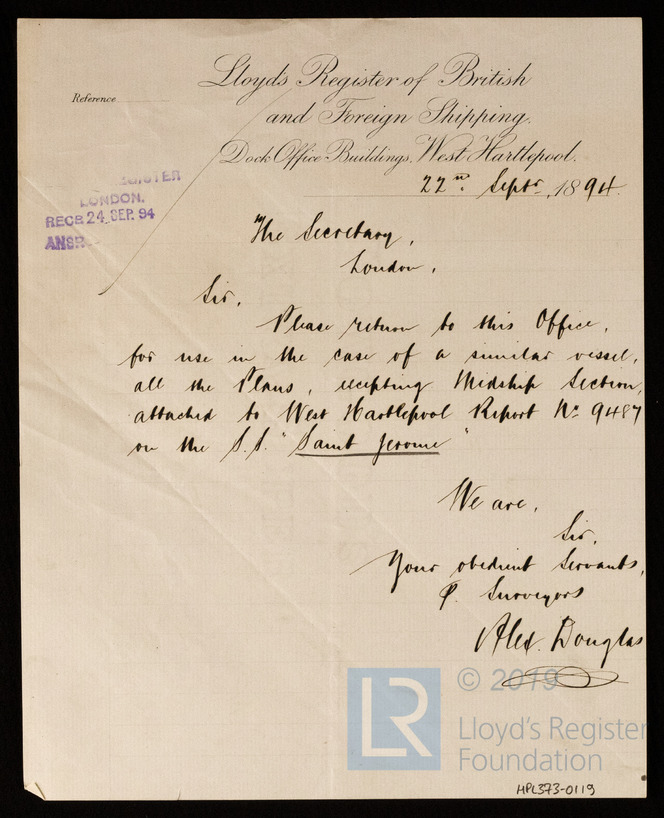 Lloyd's Register of British
and Foreign Shipping.
Reference
Dock Office Buildings, West Hartlepool.
22nd Septr. 1894.
REGISTER
LONDON.
RECD 24 SEP. 94
ANSR
The Secretary,
London,
Sir,
Please return to this Office,
for use in the case of a similar vessel,
all the Plans, excepting Midship Section,
attached to West Hartlepool Report No 9487
on the S.S. "Saint Jerome"
We are,
Sir,
Your obedient Servants,
P. Surveyors
Alex. Douglas
LR
© 2019
Lloyd's Register
Foundation
HPL373-0119